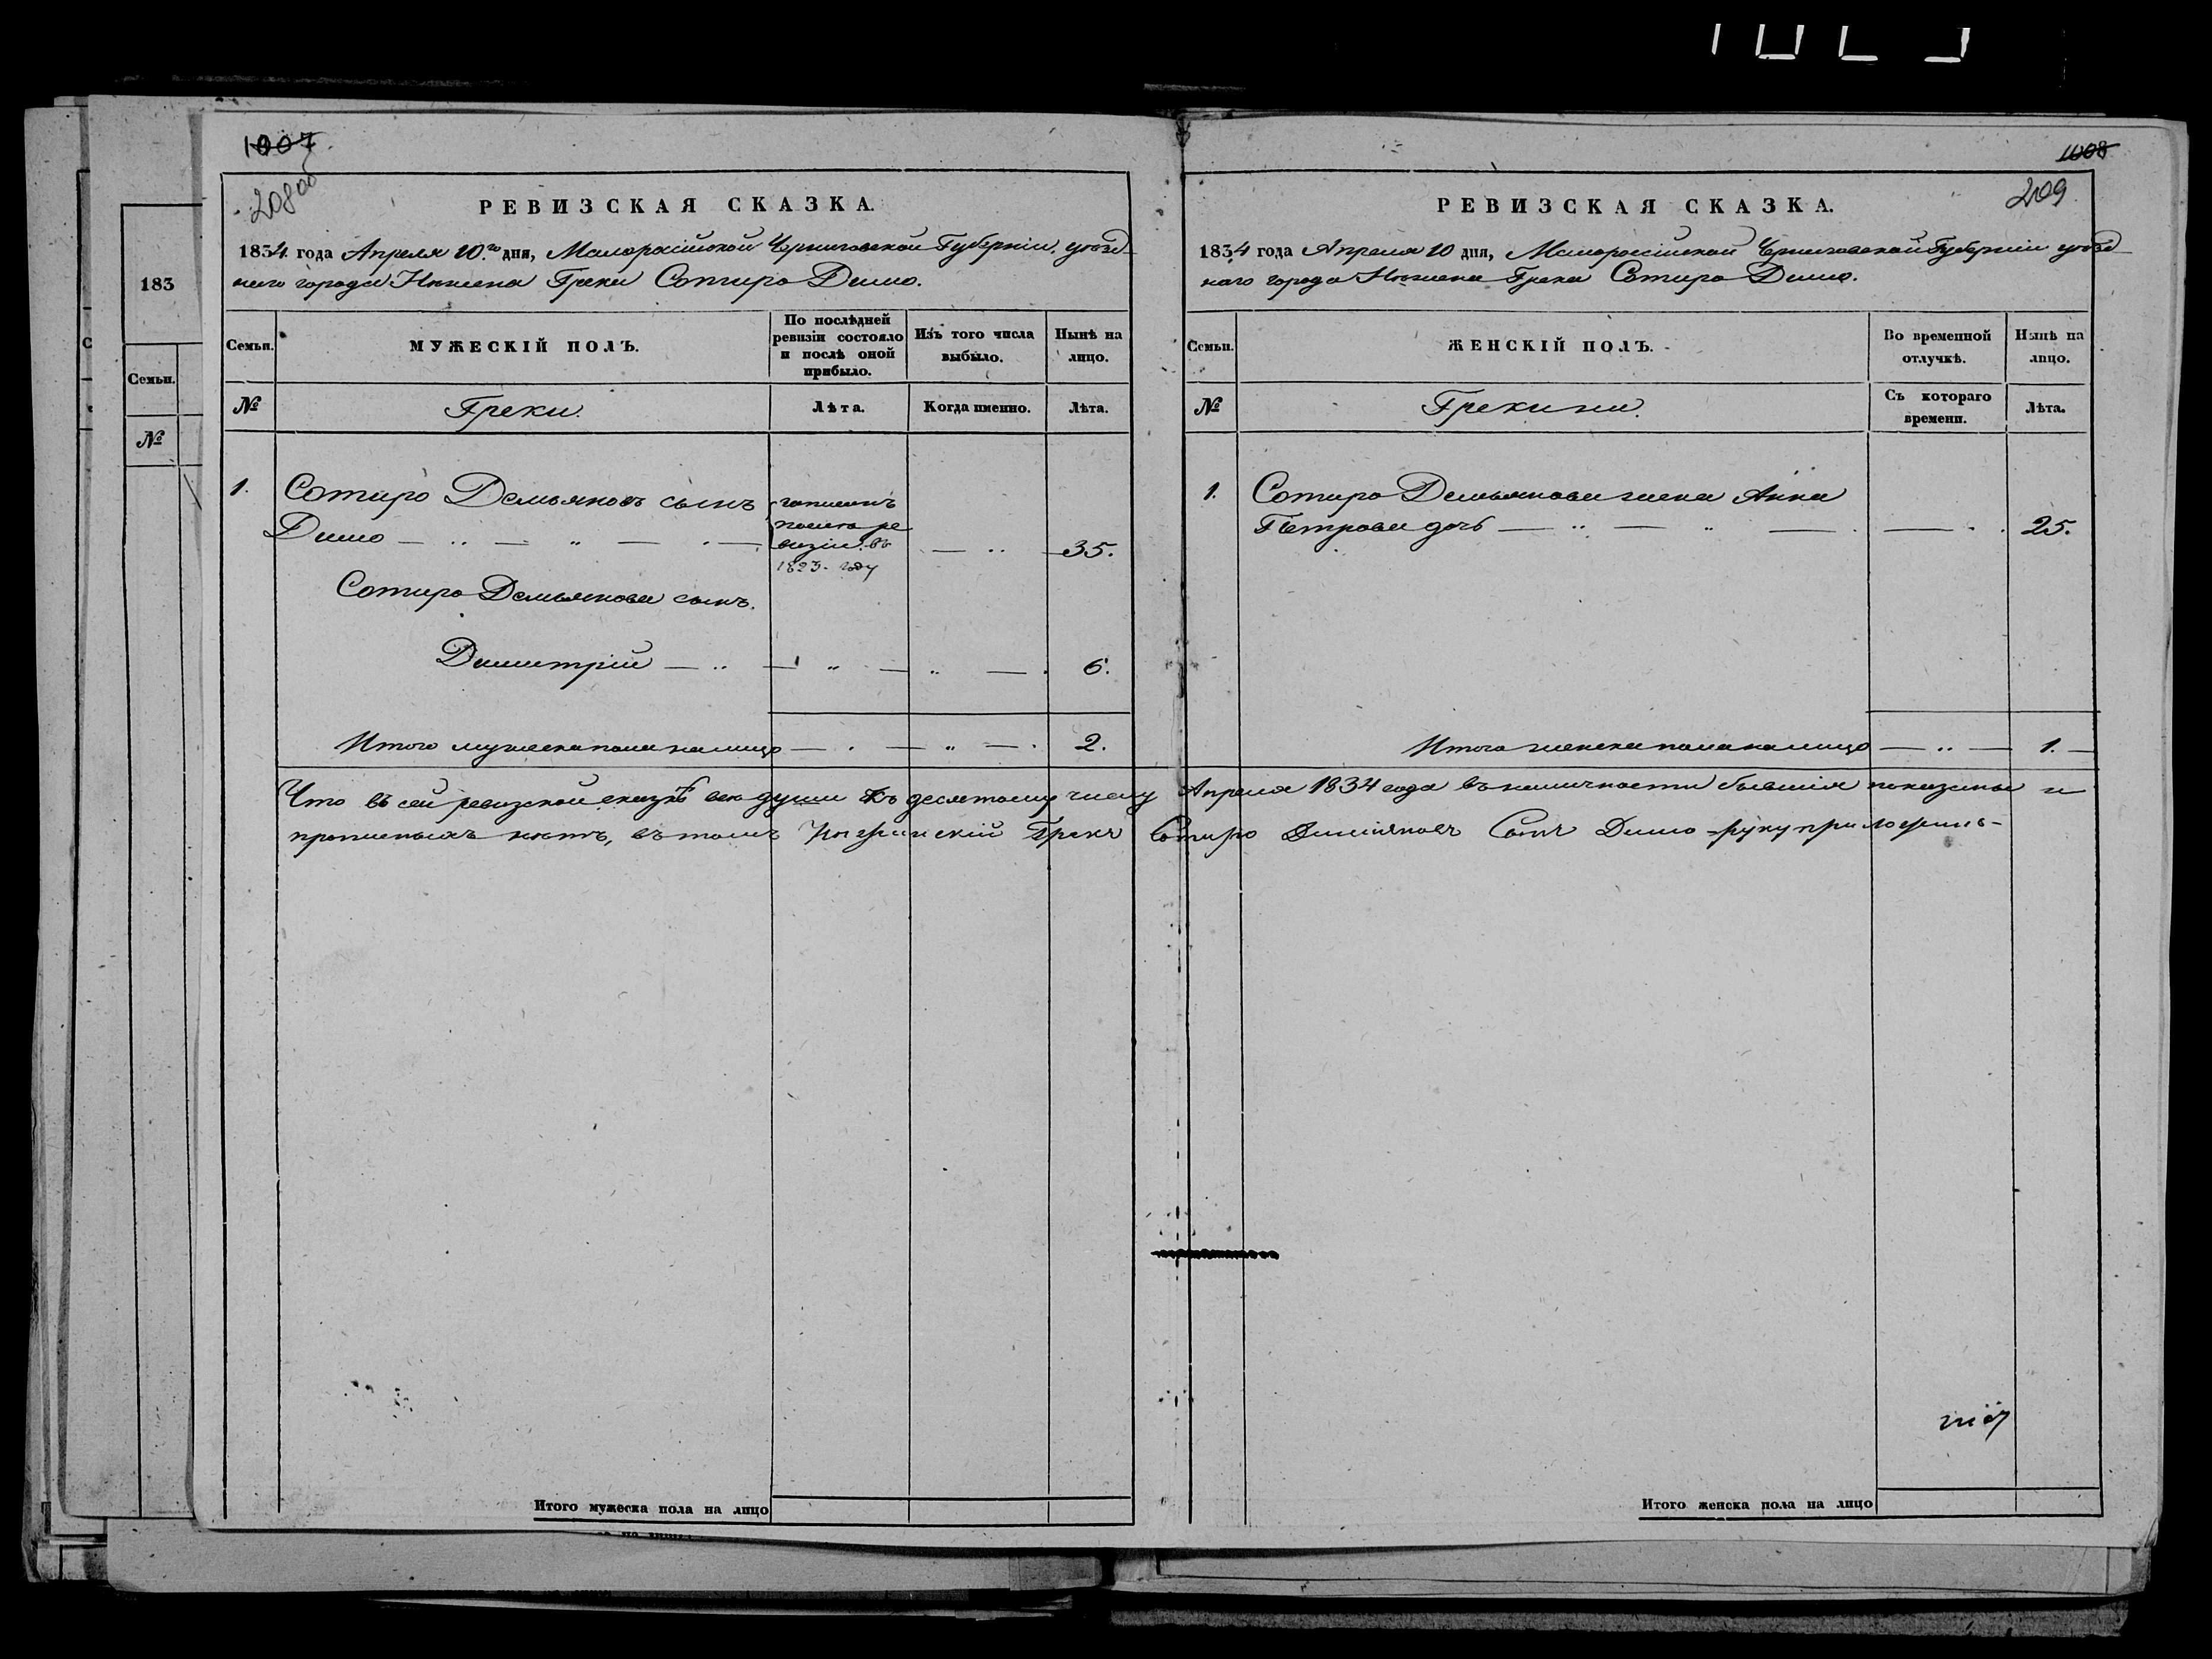 1007
208об
РЕВИЗСКАЯ СКАЗКА.
1834 года Апреля 10.го дня, Малороссійской Черниговской Губерніи уезд-
наго города Нежина Грека Сотира Димо.
Семьи.
МУЖЕСКІЙ ПОЛЪ.
По послѣдней ревизіи состояло и послѣ оной прибыло.
Изъ того числа выбыло.
Нынѣ на лицо.
№
Греки.
Лѣта.
Когда именно.
Лѣта.
1. Сотиро Демьяновъ сынъ
Димо
записанъ
после ре
визіи въ
1823 году
35.
Сотиро Демьянова сынъ.
Димитрій 6.
Итого мужеска пола налицо 2.
1008
209
РЕВИЗСКАЯ СКАЗКА.
1834 года Апреля 10 дня, Малороссійской Черниговской Губерніи уезд-
наго города Нежина Грека Сотиро Димо.
Семьи.
ЖЕНСКІЙ ПОЛЪ.
Во временной отлучкѣ.
Нынѣ на лицо.
№
Грекини.
Съ котораго времени.
Лѣта.
1. Сотиро Демьянова жена Анна
Петрова дочь 25.
Итого женска пола налицо 1.
Что въ сей ревизской сказкѣ все души къ десятому числу Апреля 1834 года въ наличности бывшія показаны и
прописныхъ нетъ, въ томъ Нежинскій Грекъ Сотиро Димияновъ Сынъ Димо руку приложилъ
Итого мужеска пола на лицо
Итого женска пола на лицо
183
Семьи.
№